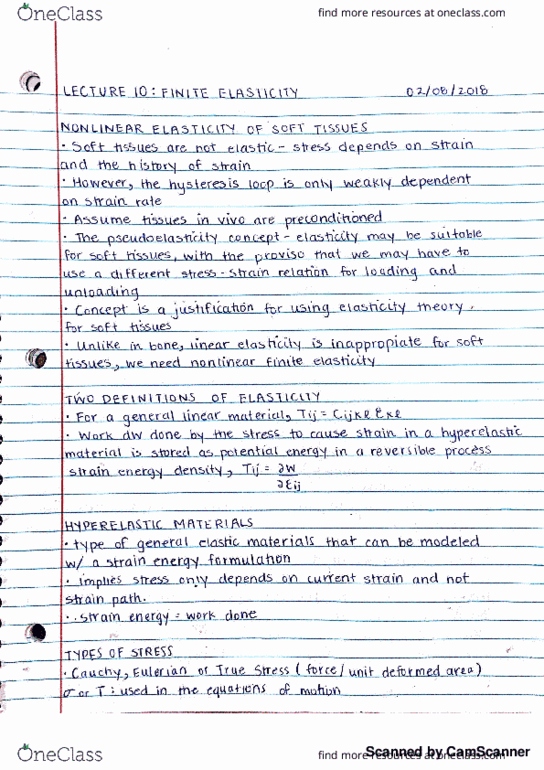 OneClass
find more resources at oneclass.com
LECTURE 10: FINITE ELASTICITY 02/08/2018
NONLINEAR ELASTICITY OF SOFT TISSUES
· Soft tissues are not elastic - stress depends on strain
and the history of strain
· However, the hysteresis loop is only weakly dependent
on strain rate
· Assume tissues in vivo are preconditioned
· The pseudoelasticity concept - elasticity may be suitable
for soft tissues, with the proviso that we may have to
use a different stress-strain relation for loading and
unloading
· Concept is a justification for using elasticity theory
for soft tissues
· Unlike in bone, linear elasticity is inappropiate for soft
tissues, we need nonlinear finite elasticity
TWO DEFINITIONS OF ELASTICITY
· For a general linear material, Tij = Cijkl Ekl
· Work dW done by the stress to cause strain in a hyperelastic
material is stored as potential energy in a reversible process
strain energy density, Tij = ∂W
∂εij
HYPERELASTIC MATERIALS
· type of general elastic materials that can be modeled
w/ a strain energy formulation
· implies stress only depends on current strain and not
strain path.
· strain energy = work done
TYPES OF STRESS
· Cauchy, Eulerian or True Stress (force/unit deformed area)
σ or T: used in the equations of motion
OneClass
find more resources at oneclass.com
Scanned by CamScanner